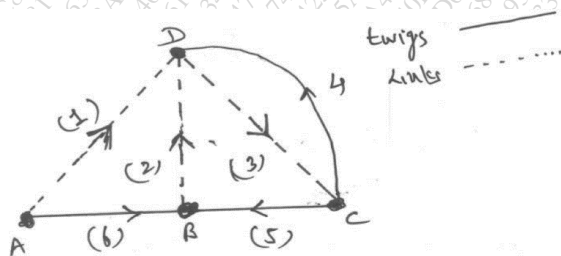 D
twigs
Links
(1)
4
(2)
(3)
A
(6)
B
(5)
C